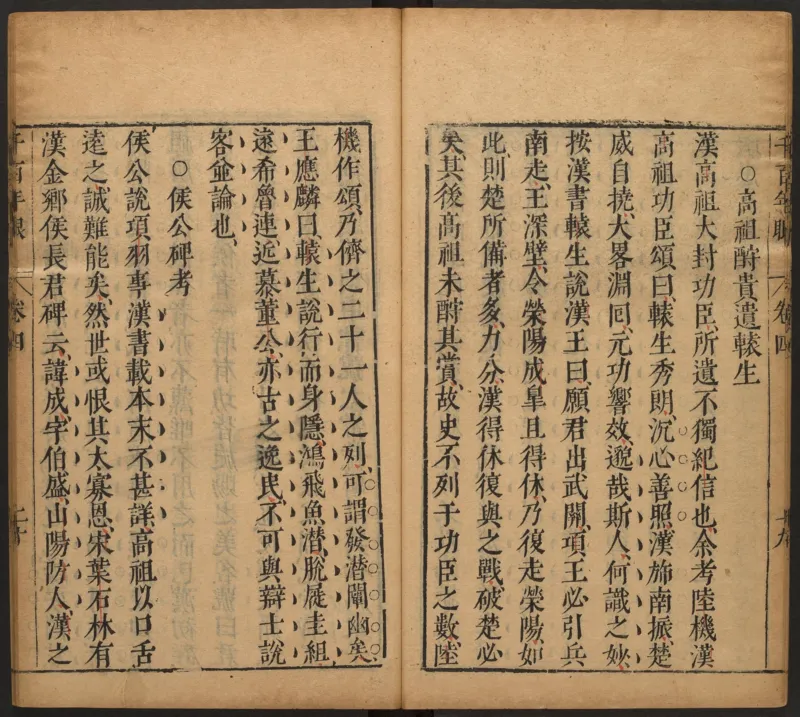 ○高祖酧貴遺轅生
漢高祖大封功臣所遺不獨紀信也余考陸機漢
高祖功臣頌曰轅生秀朗沉心善照漢斾南振楚
威自撓大畧淵回元功響效邈哉斯人何識之妙
按漢書轅生說漢王曰願君出武關項王必引兵
南走王深壁令榮陽成臯且得休乃復走榮陽如
此則楚所備者多力分漢得休復與之戰破楚必
矣其後高祖未酧其賞故史不列于功臣之數陸
卷四
機作頌乃儕之二十一人之列可謂發潜闡幽矣
王應麟曰轅生說行而身隱鴻飛魚潜脫屣圭組
遠希魯連近慕董公亦古之逸民不可與辯士說
客並論也
○侯公碑考
侯公說項羽事漢書載本末不甚詳高祖以口舌
遠之誠難能矣然世或恨其太寡恩宋葉石林有
漢金鄉侯長君碑云諱成字伯盛山陽防人漢之
卷四